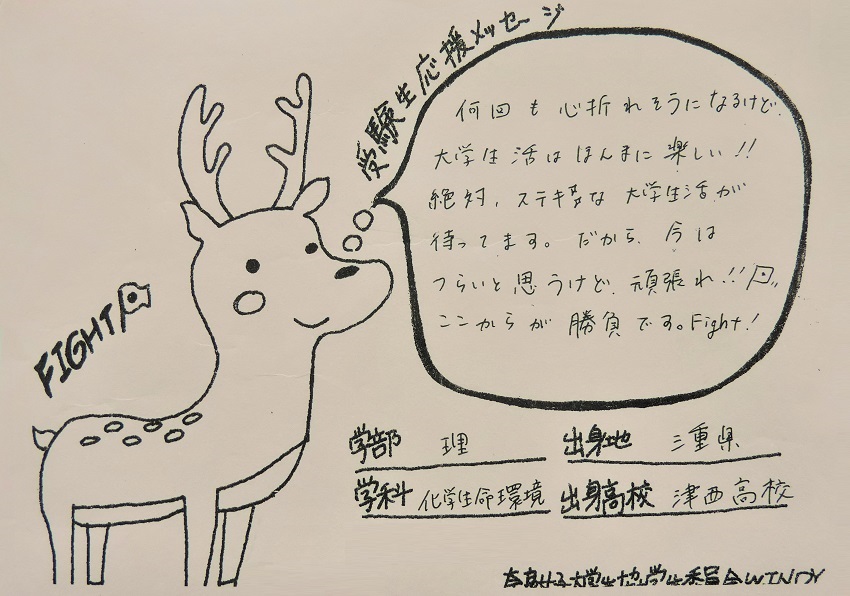 受験生応援メッセージ
何回も心折れそうになるけど、
大学生活はほんまに楽しい!!
絶対、ステキな大学生活が
待ってます。だから、今は
つらいと思うけど、頑張れ!!
ここからが勝負です。Fight!
FIGHT
学部 理
出身地 三重県
学科 化学生命環境
出身高校 津西高校
奈良女子大学生協学生委員会WINDY